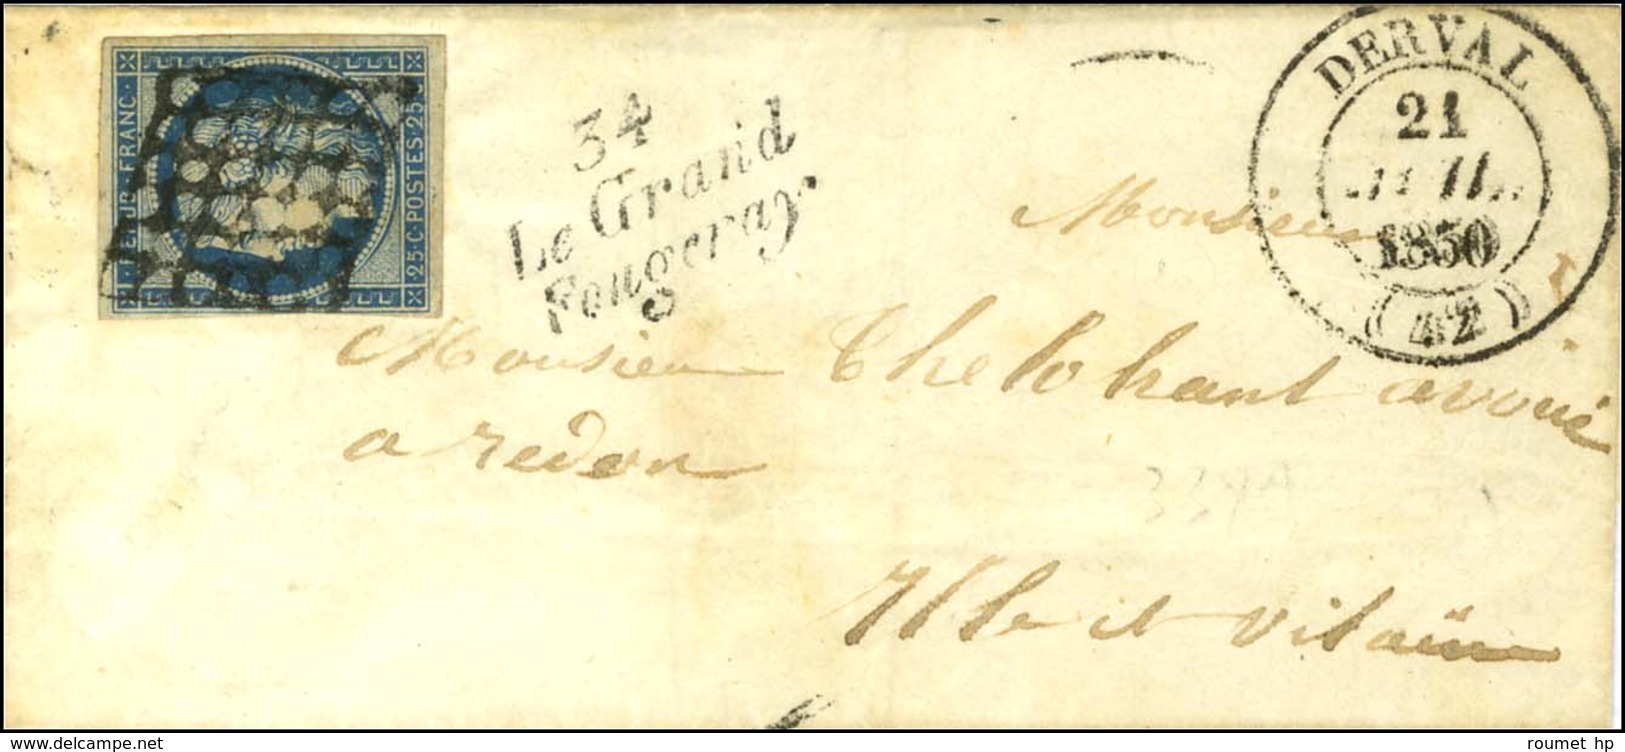 REPUB·FRANC·
25·C·POSTES·25·C
34
Le Grand
Fougeray
DERVAL
21
JUIL.
1850
(42)
Monsieur
Monsieur Thelohant avoué
a redon
Ille et vilaine
www.delcampe.net
roumet hp